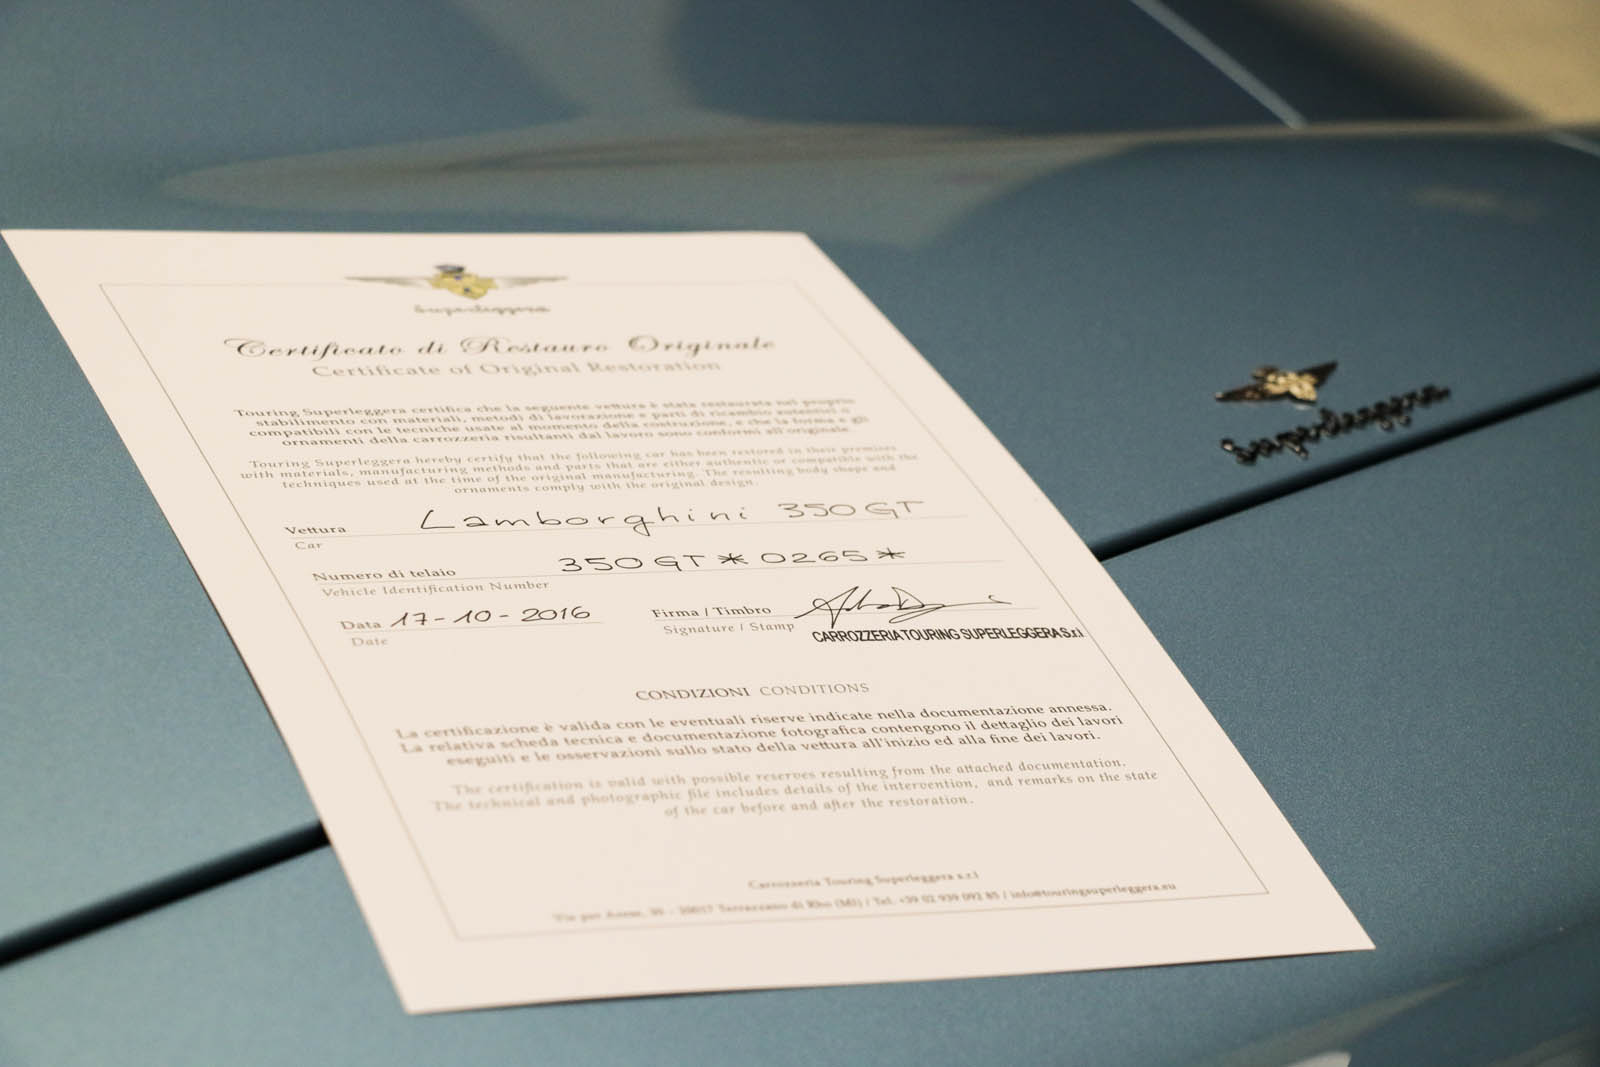 Superleggera
Certificato di Restauro Originale
Certificate of Original Restoration
Touring Superleggera certifica che la seguente vettura è stata restaurata nel proprio
stabilimento con materiali, metodi di lavorazione e parti di ricambio autentici o
compatibili con le tecniche usate al momento della costruzione, e che la forma e gli
ornamenti della carrozzeria risultanti dal lavoro sono conformi all'originale.
Touring Superleggera hereby certify that the following car has been restored in their premises
with materials, manufacturing methods and parts that are either authentic or compatible with the
techniques used at the time of the original manufacturing. The resulting body shape and
ornaments comply with the original design.
Vettura Lamborghini 350 GT
Car
Numero di telaio 350 GT * 0265 *
Vehicle Identification Number
Data 17-10-2016 Firma / Timbro
Date Signature / Stamp CARROZZERIA TOURING SUPERLEGGERA S.r.l
CONDIZIONI CONDITIONS
La certificazione è valida con le eventuali riserve indicate nella documentazione annessa.
La relativa scheda tecnica e documentazione fotografica contengono il dettaglio dei lavori
eseguiti e le osservazioni sullo stato della vettura all'inizio ed alla fine dei lavori.
The certification is valid with possible reserves resulting from the attached documentation.
The technical and photographic file includes details of the intervention, and remarks on the state
of the car before and after the restoration.
Carrozzeria Touring Superleggera s.r.l
Via per 20017 Terrazzano di Rho (MI) / Tel. +39 02 939 092 85 / info@touringsuperleggera.eu
Superleggera